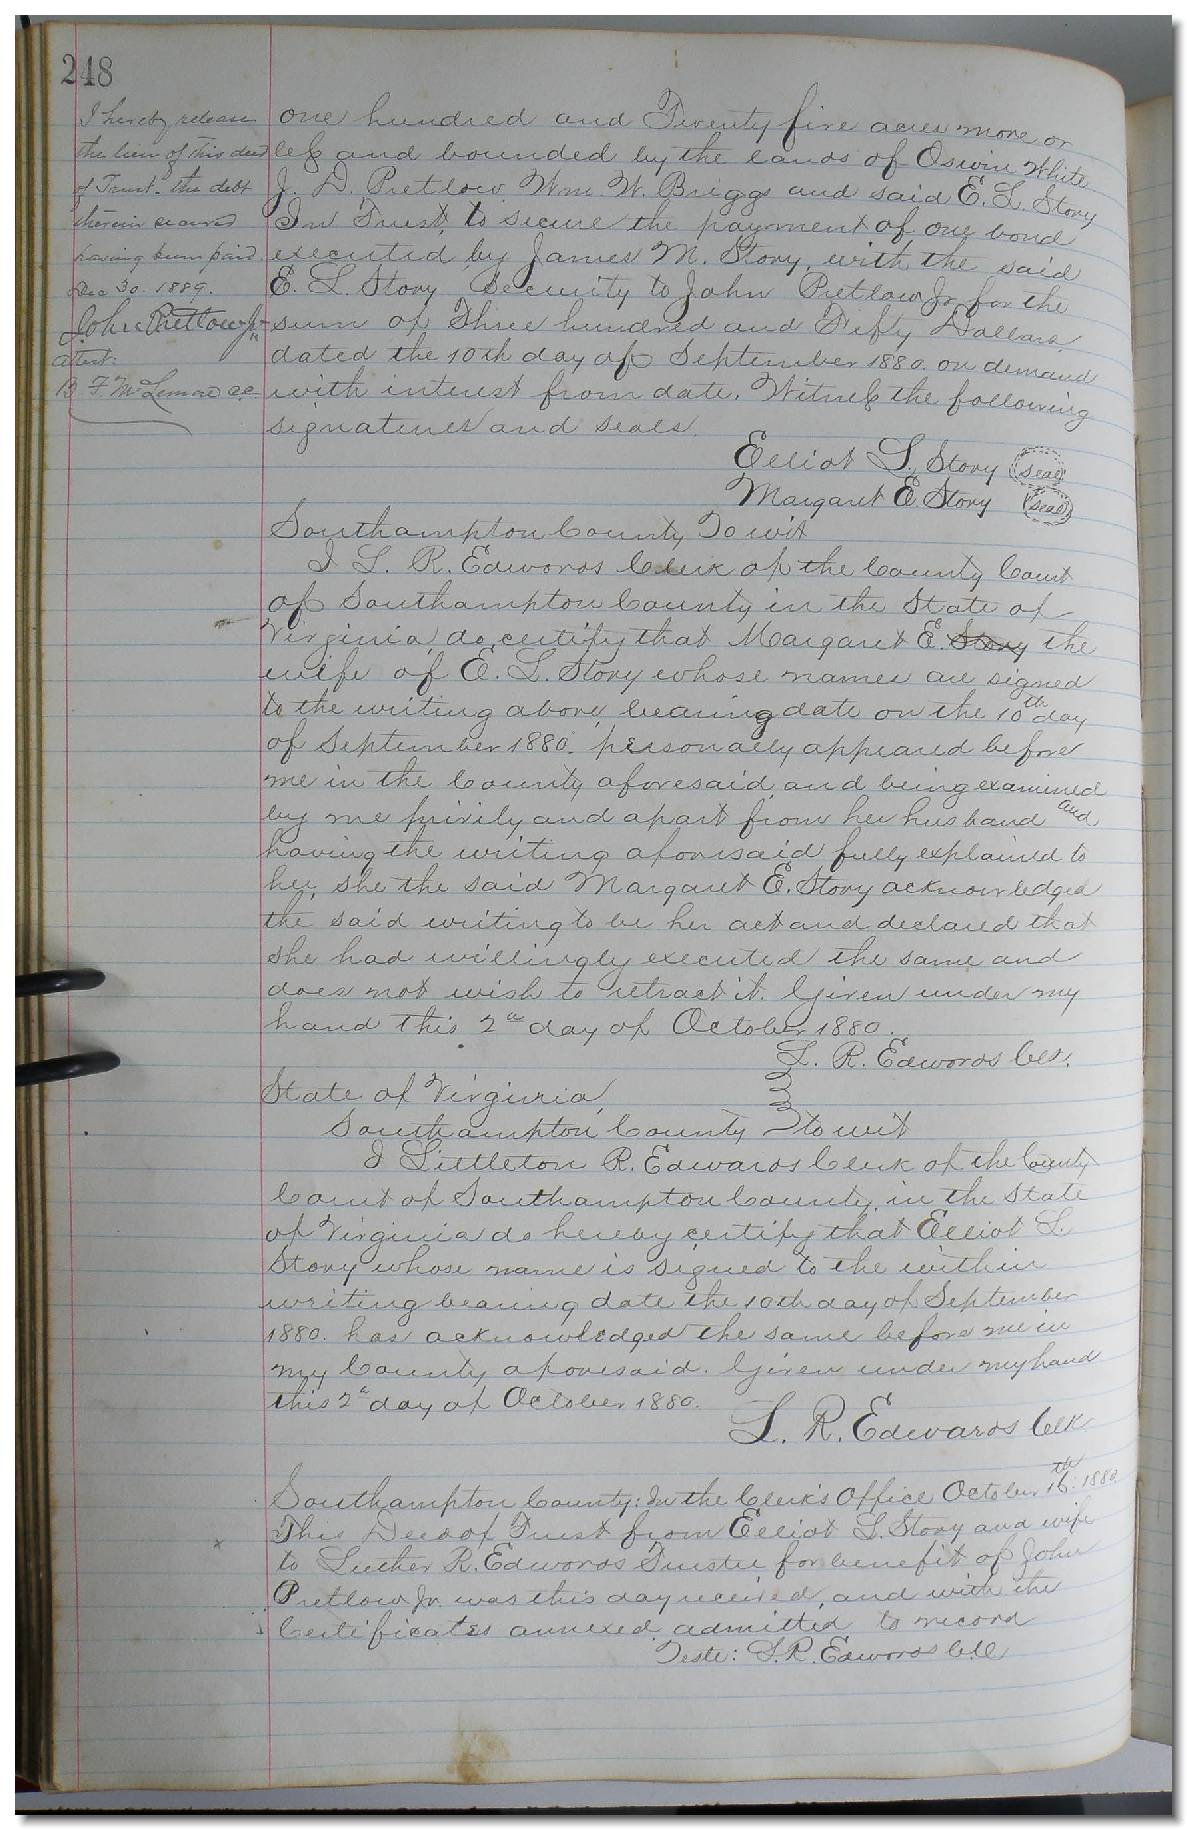 248
I hereby release
the lien of this deed
of Trust. the debt
therein secured
having been paid
Dec 30. 1889.
John Pretlow Jr
attest:
B F McLemore cc
one hundred and Twenty five acres more or
less and bounded by the lands of Oswin White
J. D. Pretlow Wm. W. Briggs and said E. L. Story
In Trust, to secure the payment of one bond
executed by James M. Story, with the said
E. L. Story Security to John Pretlow Jr for the
sum of Three hundred and Fifty Dollars
dated the 10th day of September 1880. on demand
with interest from date. Witness the following
signatures and seals.
Elliot L. Story (seal)
Margaret E. Story (seal)
Southampton County To wit
I L. R. Edwards Clerk of the County Court
of Southampton County in the State of
Virginia, do certify that Margaret E. Story the
wife of E. L. Story whose names are signed
to the writing above, bearing date on the 10th day
of September 1880. personally appeared before
me in the County aforesaid and being examined
by me privily and apart from her husband and
having the writing aforesaid fully explained to
her, she the said Margaret E. Story acknowledged
the said writing to be her act and declared that
she had willingly executed the same and
does not wish to retract it. Given under my
hand this 2d day of October 1880.
L. R. Edwards Clk.
State of Virginia,
Southampton County to wit
I Littleton R. Edwards Clerk of the County
Court of Southampton County, in the State
of Virginia do hereby certify that Elliot L.
Story whose name is signed to the within
writing bearing date the 10th day of September
1880. has acknowledged the same before me in
my County aforesaid. Given under my hand
this 2d day of October 1880.
L. R. Edwards Clk
Southampton County: In the Clerk's Office October 16th. 1880
This Deed of Trust from Elliot L. Story and wife
to Luther R. Edwards Trustee for benefit of John
Pretlow Jr. was this day received, and with the
Certificates annexed admitted to record
Teste: L. R. Edwards Clk